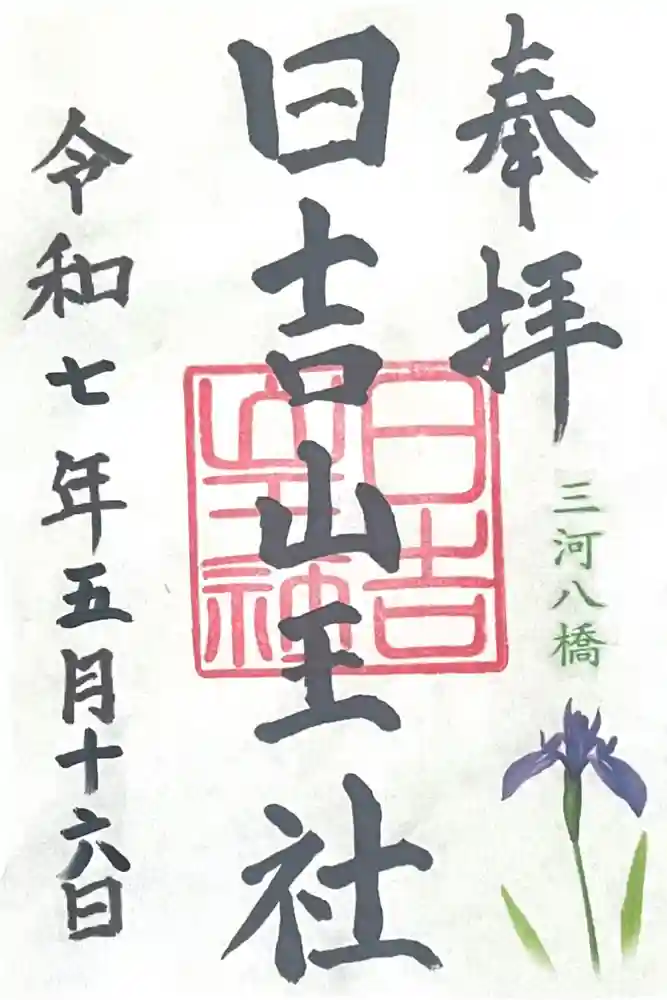 奉拝
三河八橋
日吉山王社
日吉山王神
令和七年五月十六日